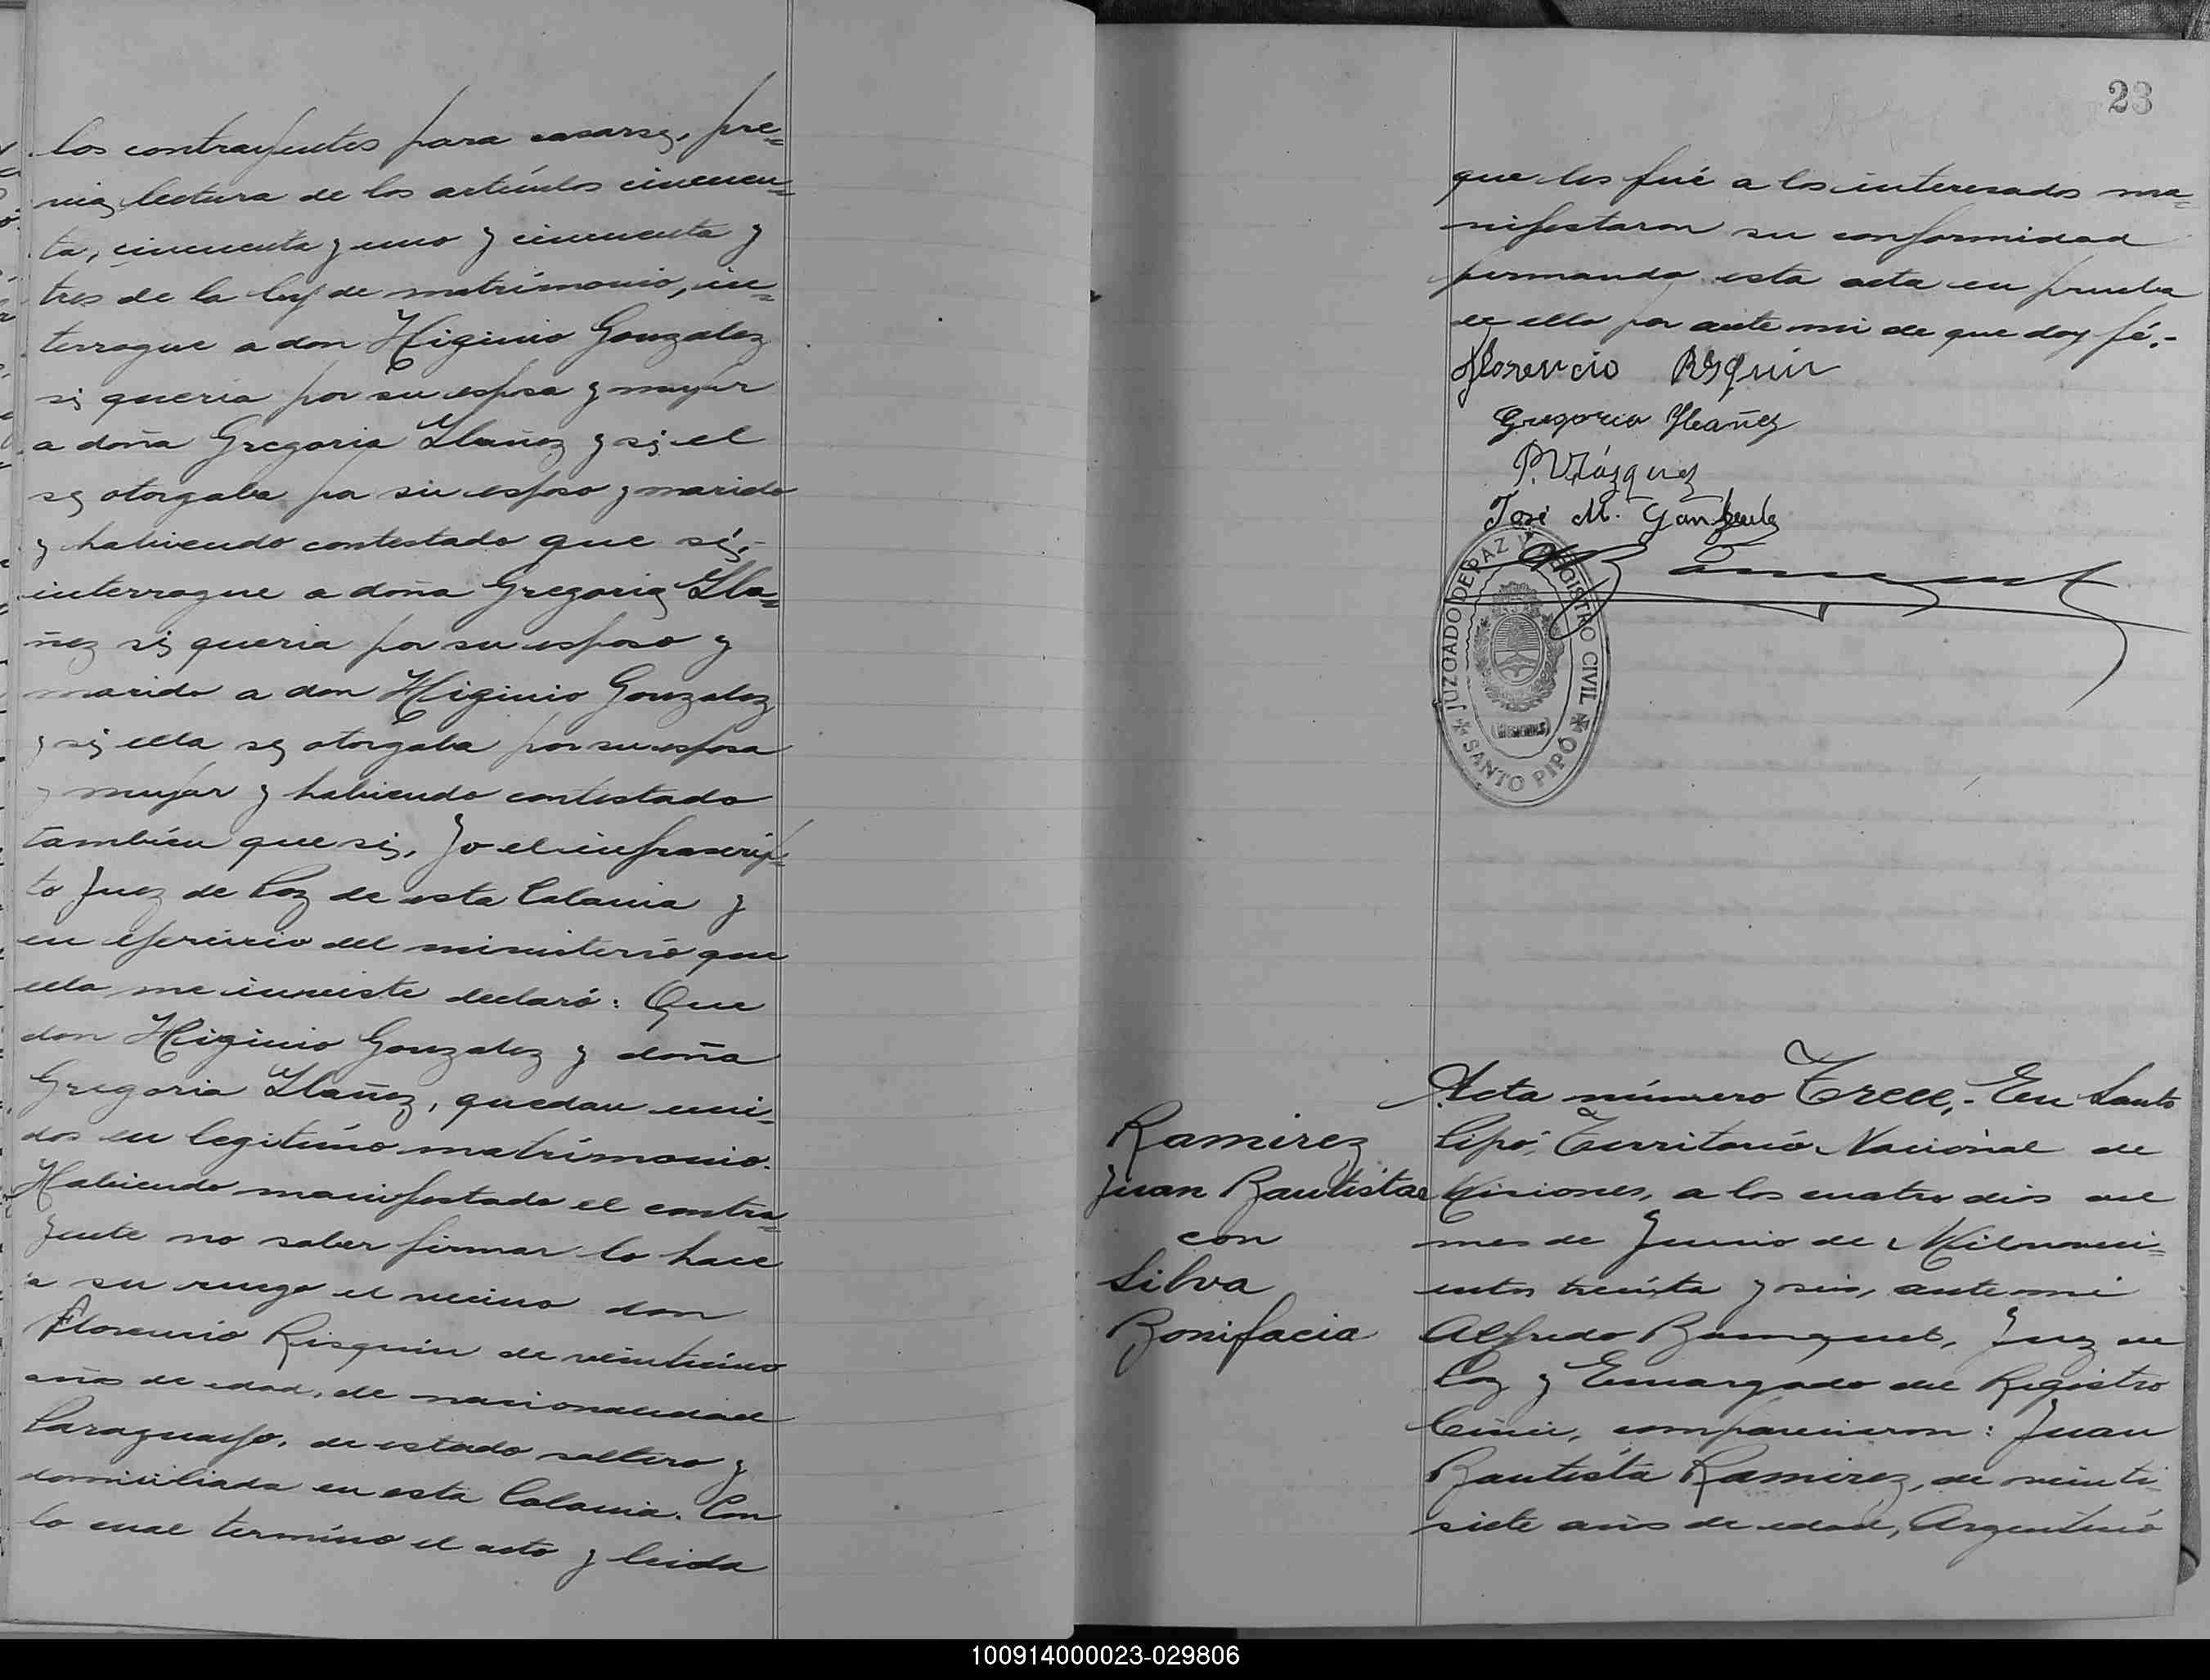 los contrayentes para casarse, pre=
via lectura de los artículos cincuen=
ta, cincuenta y uno y cincuenta y
tres de la ley de matrimonio, in=
terrogue a don Higinio Gonzalez
si queria por su esposa y mujer
a doña Gregoria Ybañez y si el
se otorgaba por su esposo y marido
y habiendo contestado que sí,-
interrogue a doña Gregoria Yba=
ñez si queria por su esposo y
marido a don Higinio Gonzalez
y si ella se otorgaba por su esposa
y mujer y habiendo contestado
también que si, Yo el infrascrip=
to Juez de Paz de esta Colonia y
en ejercicio del ministerio que
ella me inviste declaró: Que
don Higinio Gonzalez y doña
Gregoria Ybañez, quedan uni=
dos en legitimo matrimonio.
Habiendo manifestado el contra=
yente no saber firmar lo hace
a su ruego el vecino don
Florencio Risquin de veinticinco
años de edad, de nacionalidad
Paraguayo, de estado soltero y
domiciliado en esta Colonia. Con
lo cual termino el acto y leida
23
que les fué a los interesados ma=
nifestaron su conformidad
firmando esta acta en prueba
de ello por ante mi de que doy fé.-
Florencio Risquin
Gregoria Ybañez
P. Vázquez
José M.
JUZGADO DE PAZ Y REGISTRO CIVIL
(MISIONES)
SANTO PIPÓ
Ramirez
Juan Bautista
con
Silva
Bonifacia
Acta número Trece,- En Santo
Pipó, Territorio Nacional de
Misiones, a los cuatro dias del
mes de Junio de Milnoveci=
entos treinta y seis, ante mi
Alfredo Juez de
Paz y Encargado del Registro
Civil, comparecieron: Juan
Bautista Ramirez, de veinti=
siete años de edad, Argentino
100914000023-029806